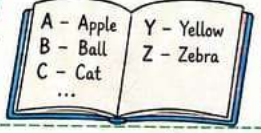 A – Apple
B – Ball
C – Cat
...
Y – Yellow
Z – Zebra